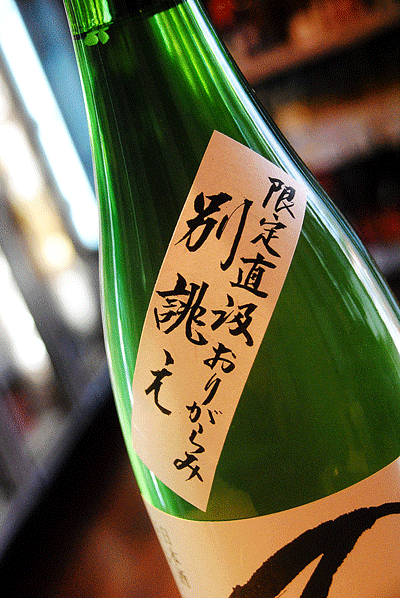 限定直汲おりがらみ
別誂え